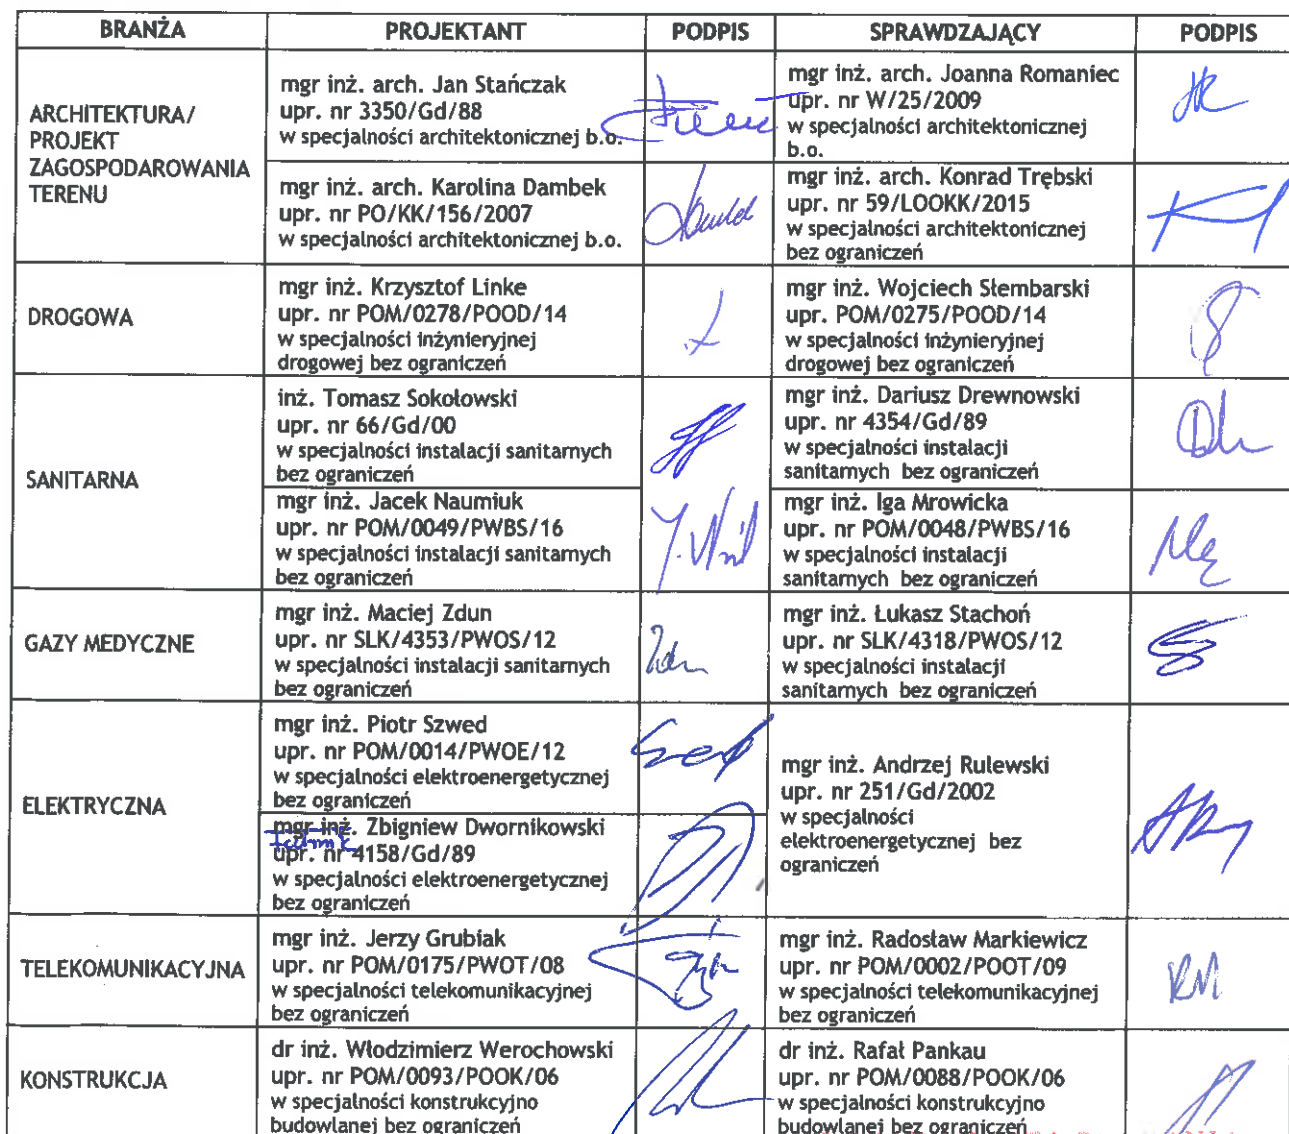 BRANŻA PROJEKTANT PODPIS SPRAWDZAJĄCY PODPIS
ARCHITEKTURA/
PROJEKT
ZAGOSPODAROWANIA
TERENU
mgr inż. arch. Jan Stańczak
upr. nr 3350/Gd/88
w specjalności architektonicznej b.o.
mgr inż. arch. Joanna Romaniec
upr. nr W/25/2009
w specjalności architektonicznej
b.o.
mgr inż. arch. Karolina Dambek
upr. nr PO/KK/156/2007
w specjalności architektonicznej b.o.
mgr inż. arch. Konrad Trębski
upr. nr 59/LOOKK/2015
w specjalności architektonicznej
bez ograniczeń
DROGOWA
mgr inż. Krzysztof Linke
upr. nr POM/0278/POOD/14
w specjalności inżynieryjnej
drogowej bez ograniczeń
mgr inż. Wojciech Stembarski
upr. POM/0275/POOD/14
w specjalności inżynieryjnej
drogowej bez ograniczeń
SANITARNA
inż. Tomasz Sokołowski
upr. nr 66/Gd/00
w specjalności instalacji sanitarnych
bez ograniczeń
mgr inż. Dariusz Drewnowski
upr. nr 4354/Gd/89
w specjalności instalacji
sanitarnych bez ograniczeń
mgr inż. Jacek Naumiuk
upr. nr POM/0049/PWBS/16
w specjalności instalacji sanitarnych
bez ograniczeń
mgr inż. Iga Mrowicka
upr. nr POM/0048/PWBS/16
w specjalności instalacji
sanitarnych bez ograniczeń
GAZY MEDYCZNE
mgr inż. Maciej Zdun
upr. nr SLK/4353/PWOS/12
w specjalności instalacji sanitarnych
bez ograniczeń
mgr inż. Łukasz Stachoń
upr. nr SLK/4318/PWOS/12
w specjalności instalacji
sanitarnych bez ograniczeń
ELEKTRYCZNA
mgr inż. Piotr Szwed
upr. nr POM/0014/PWOE/12
w specjalności elektroenergetycznej
bez ograniczeń
mgr inż. Zbigniew Dwornikowski
technik
upr. nr 4158/Gd/89
w specjalności elektroenergetycznej
bez ograniczeń
mgr inż. Andrzej Rulewski
upr. nr 251/Gd/2002
w specjalności
elektroenergetycznej bez
ograniczeń
TELEKOMUNIKACYJNA
mgr inż. Jerzy Grubiak
upr. nr POM/0175/PWOT/08
w specjalności telekomunikacyjnej
bez ograniczeń
mgr inż. Radosław Markiewicz
upr. nr POM/0002/POOT/09
w specjalności telekomunikacyjnej
bez ograniczeń
KONSTRUKCJA
dr inż. Włodzimierz Werochowski
upr. nr POM/0093/POOK/06
w specjalności konstrukcyjno
budowlanej bez ograniczeń
dr inż. Rafał Pankau
upr. nr POM/0088/POOK/06
w specjalności konstrukcyjno
budowlanej bez ograniczeń